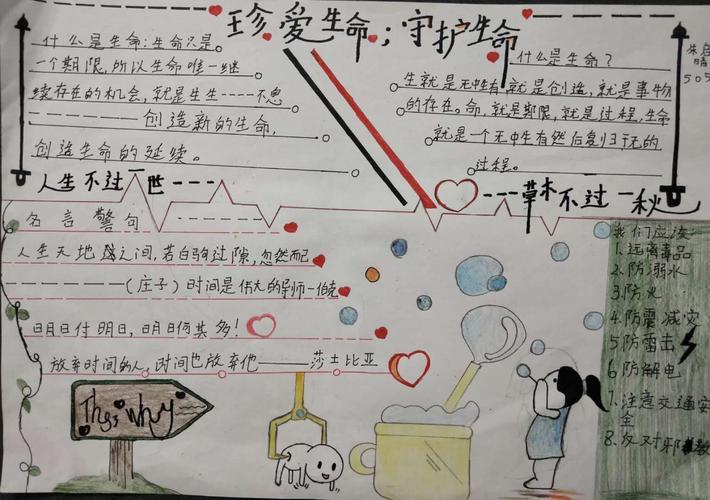 珍爱生命;守护生命
朱启晴
505
什么是生命:生命只是
一个期限,所以生命唯一继
续存在的机会,就是生生-----不息
--------创造新的生命,
创造生命的延续。
什么是生命?
生就是无中生有,就是创造,就是事物
的存在。命,就是期限,就是过程,生命
就是一个无中生有然后复归于无的
过程。
人生不过一世----
---草木不过一秋
名言警句--------
人生天地之间,若白驹过隙,忽然而已
--------(庄子)时间是伟大的导师—伯克
明日付明日,明日何其多!
放弃时间的人,时间也放弃他——莎士比亚
Thgs why
我们应该:
1、远离毒品
2、防溺水
3、防火
4、防震减灾
5、防雷击
6、防解电
7、注意交通安
全
8、反对邪教